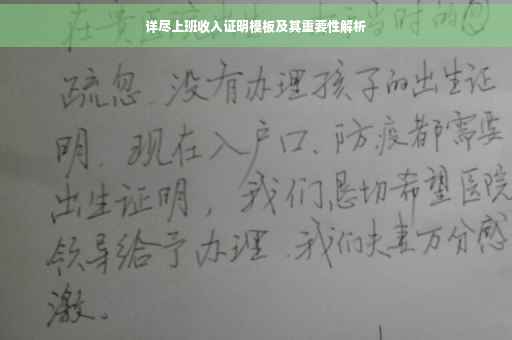 详尽上班收入证明模板及其重要性解析
当时的
疏忽、没有办理孩子的出生证
明、现在入户口、防疫都需要
出生证明，我们恳切希望医院
领导给予办理、我们夫妻万分感
激。